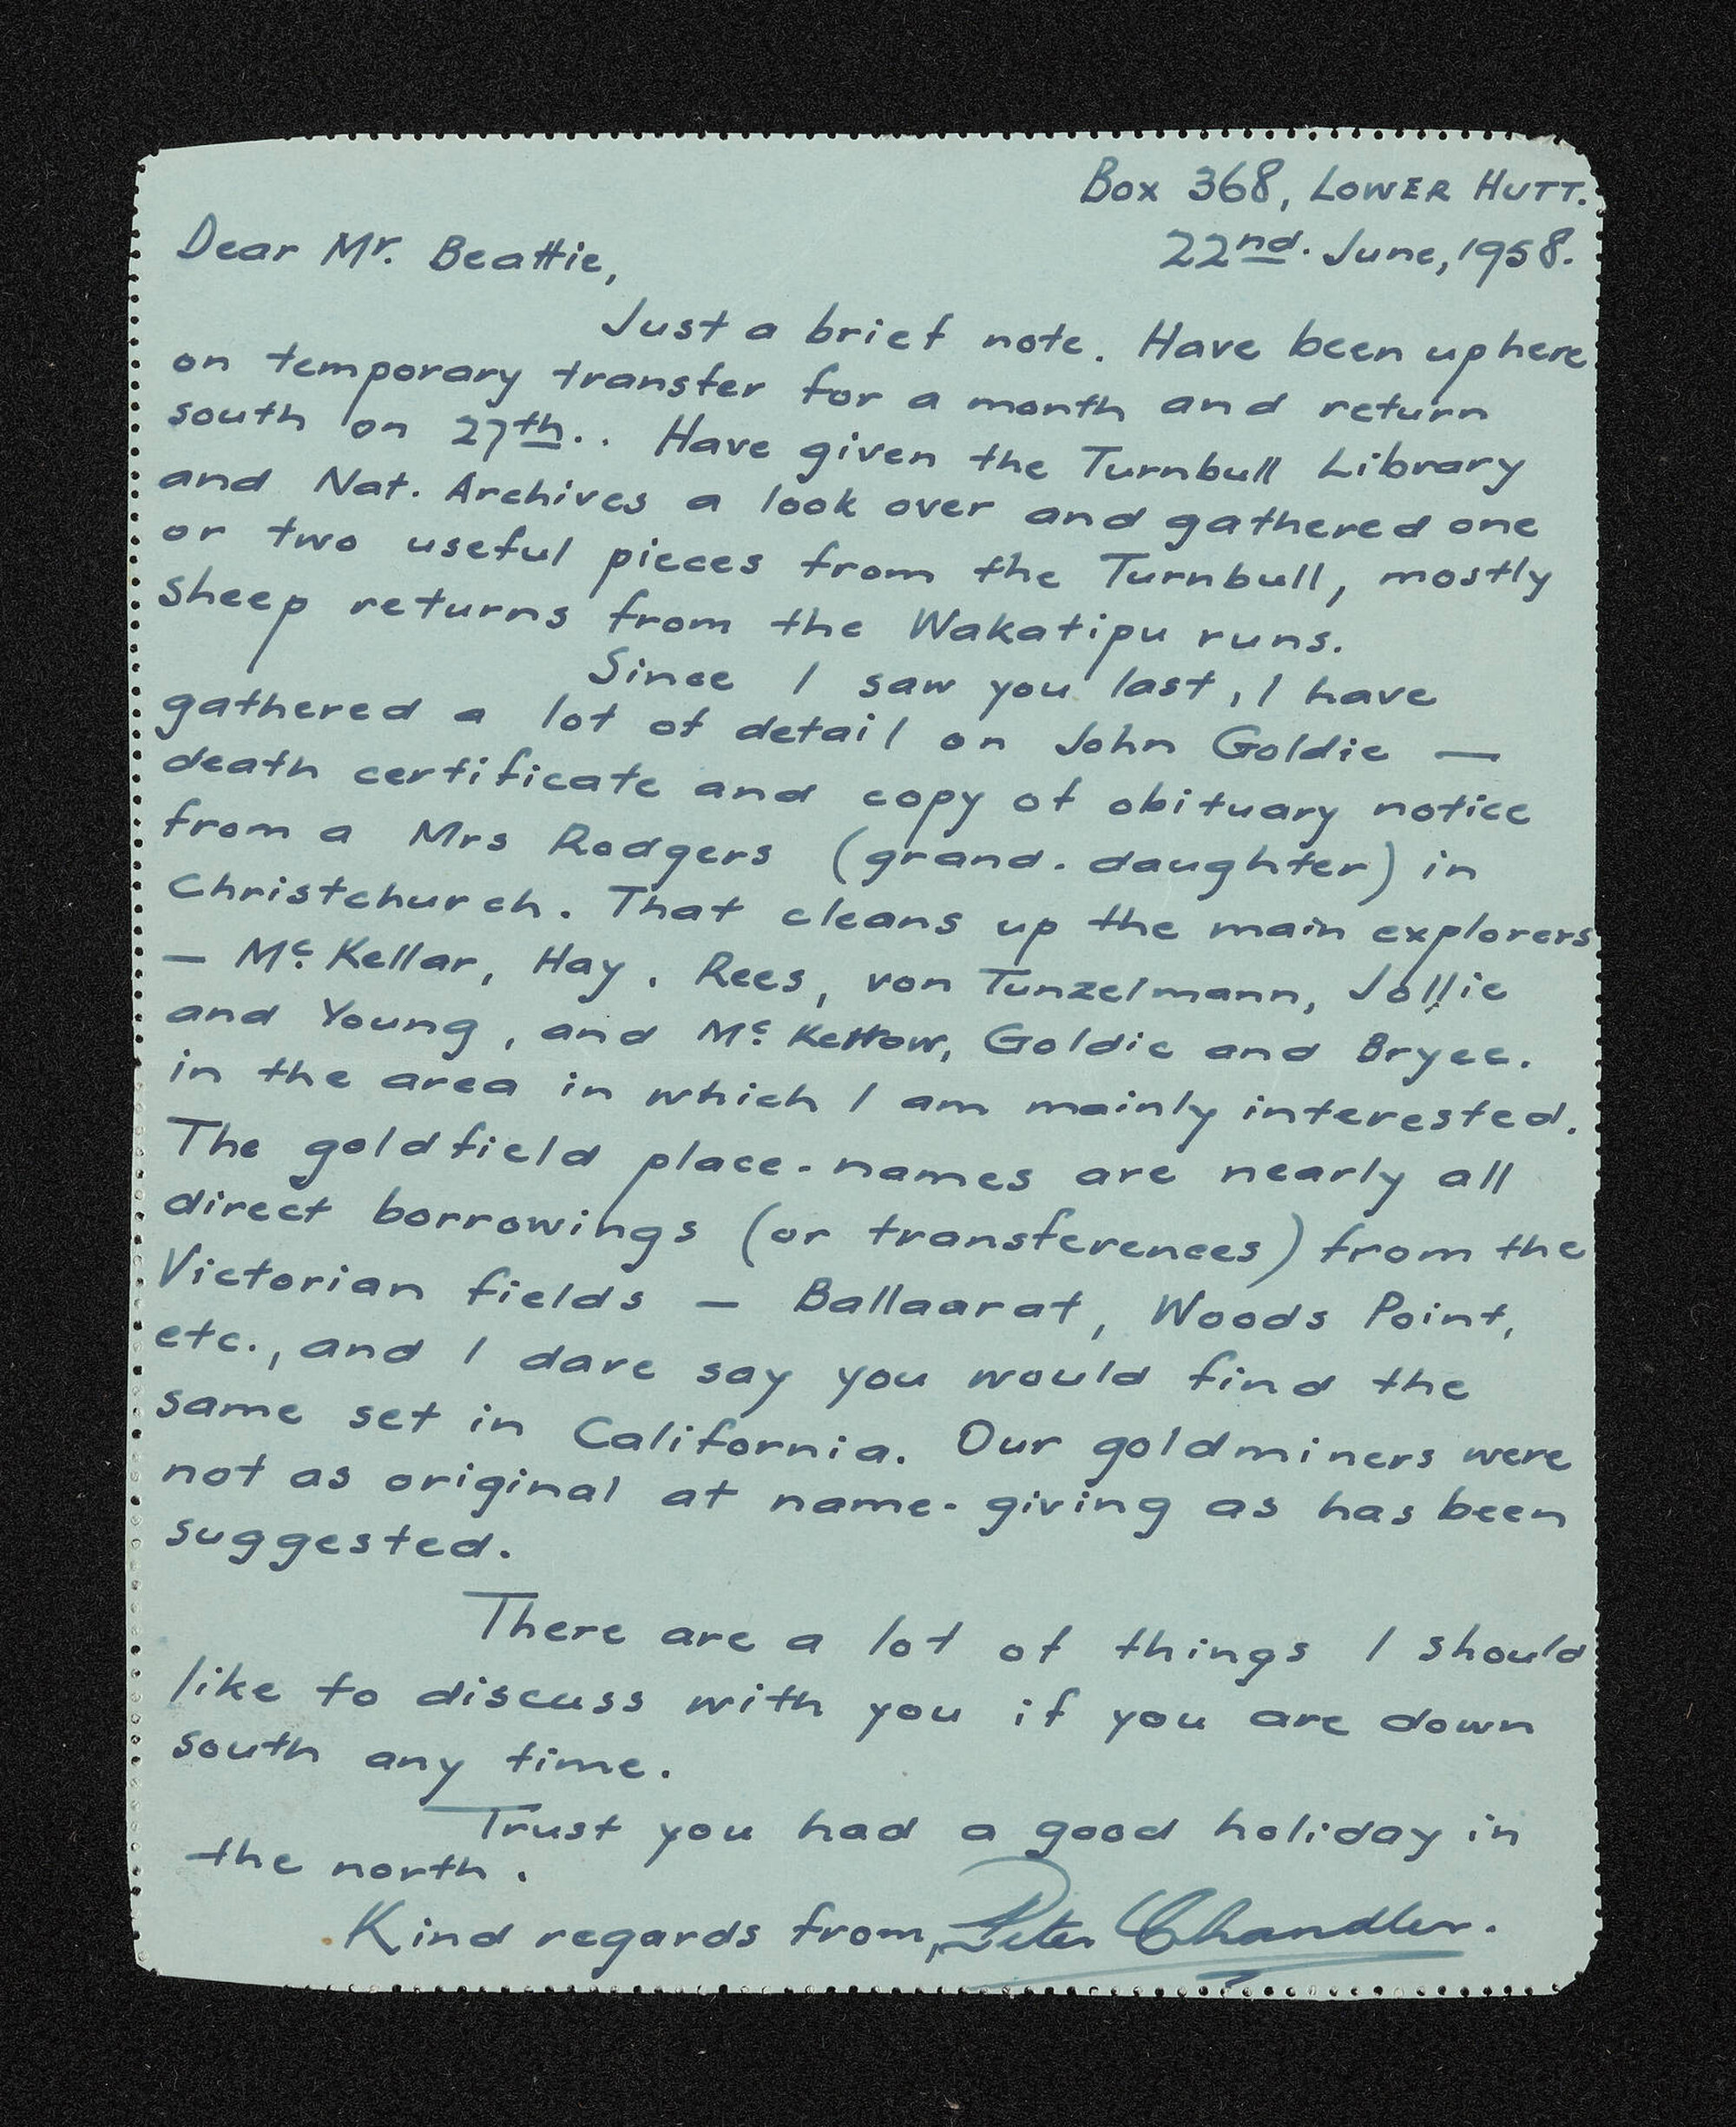 Box 368, LOWER HUTT.
22nd. June, 1958.
Dear Mr. Beattie,
Just a brief note. Have been up here
on temporary transfer for a month and return
south on 27th.. Have given the Turnbull Library
and Nat. Archives a look over and gathered one
or two useful pieces from the Turnbull, mostly
sheep returns from the Wakatipu runs.
Since I saw you last, I have
gathered a lot of detail on John Goldie —
death certificate and copy of obituary notice
from a Mrs Rodgers (grand-daughter) in
Christchurch. That cleans up the main explorers
— McKellar, Hay, Rees, von Tunzelmann, Jollie
and Young, and Mc. Goldie and Bryce.
in the area in which I am mainly interested.
The goldfield place-names are nearly all
direct borrowings (or transferences) from the
Victorian fields — Ballaarat, Woods Point,
etc., and I dare say you would find the
same set in California. Our goldminers were
not as original at name-giving as has been
suggested.
There are a lot of things I should
like to discuss with you if you are down
south any time.
Trust you had a good holiday in
the north.
Kind regards from, Peter Chandler.